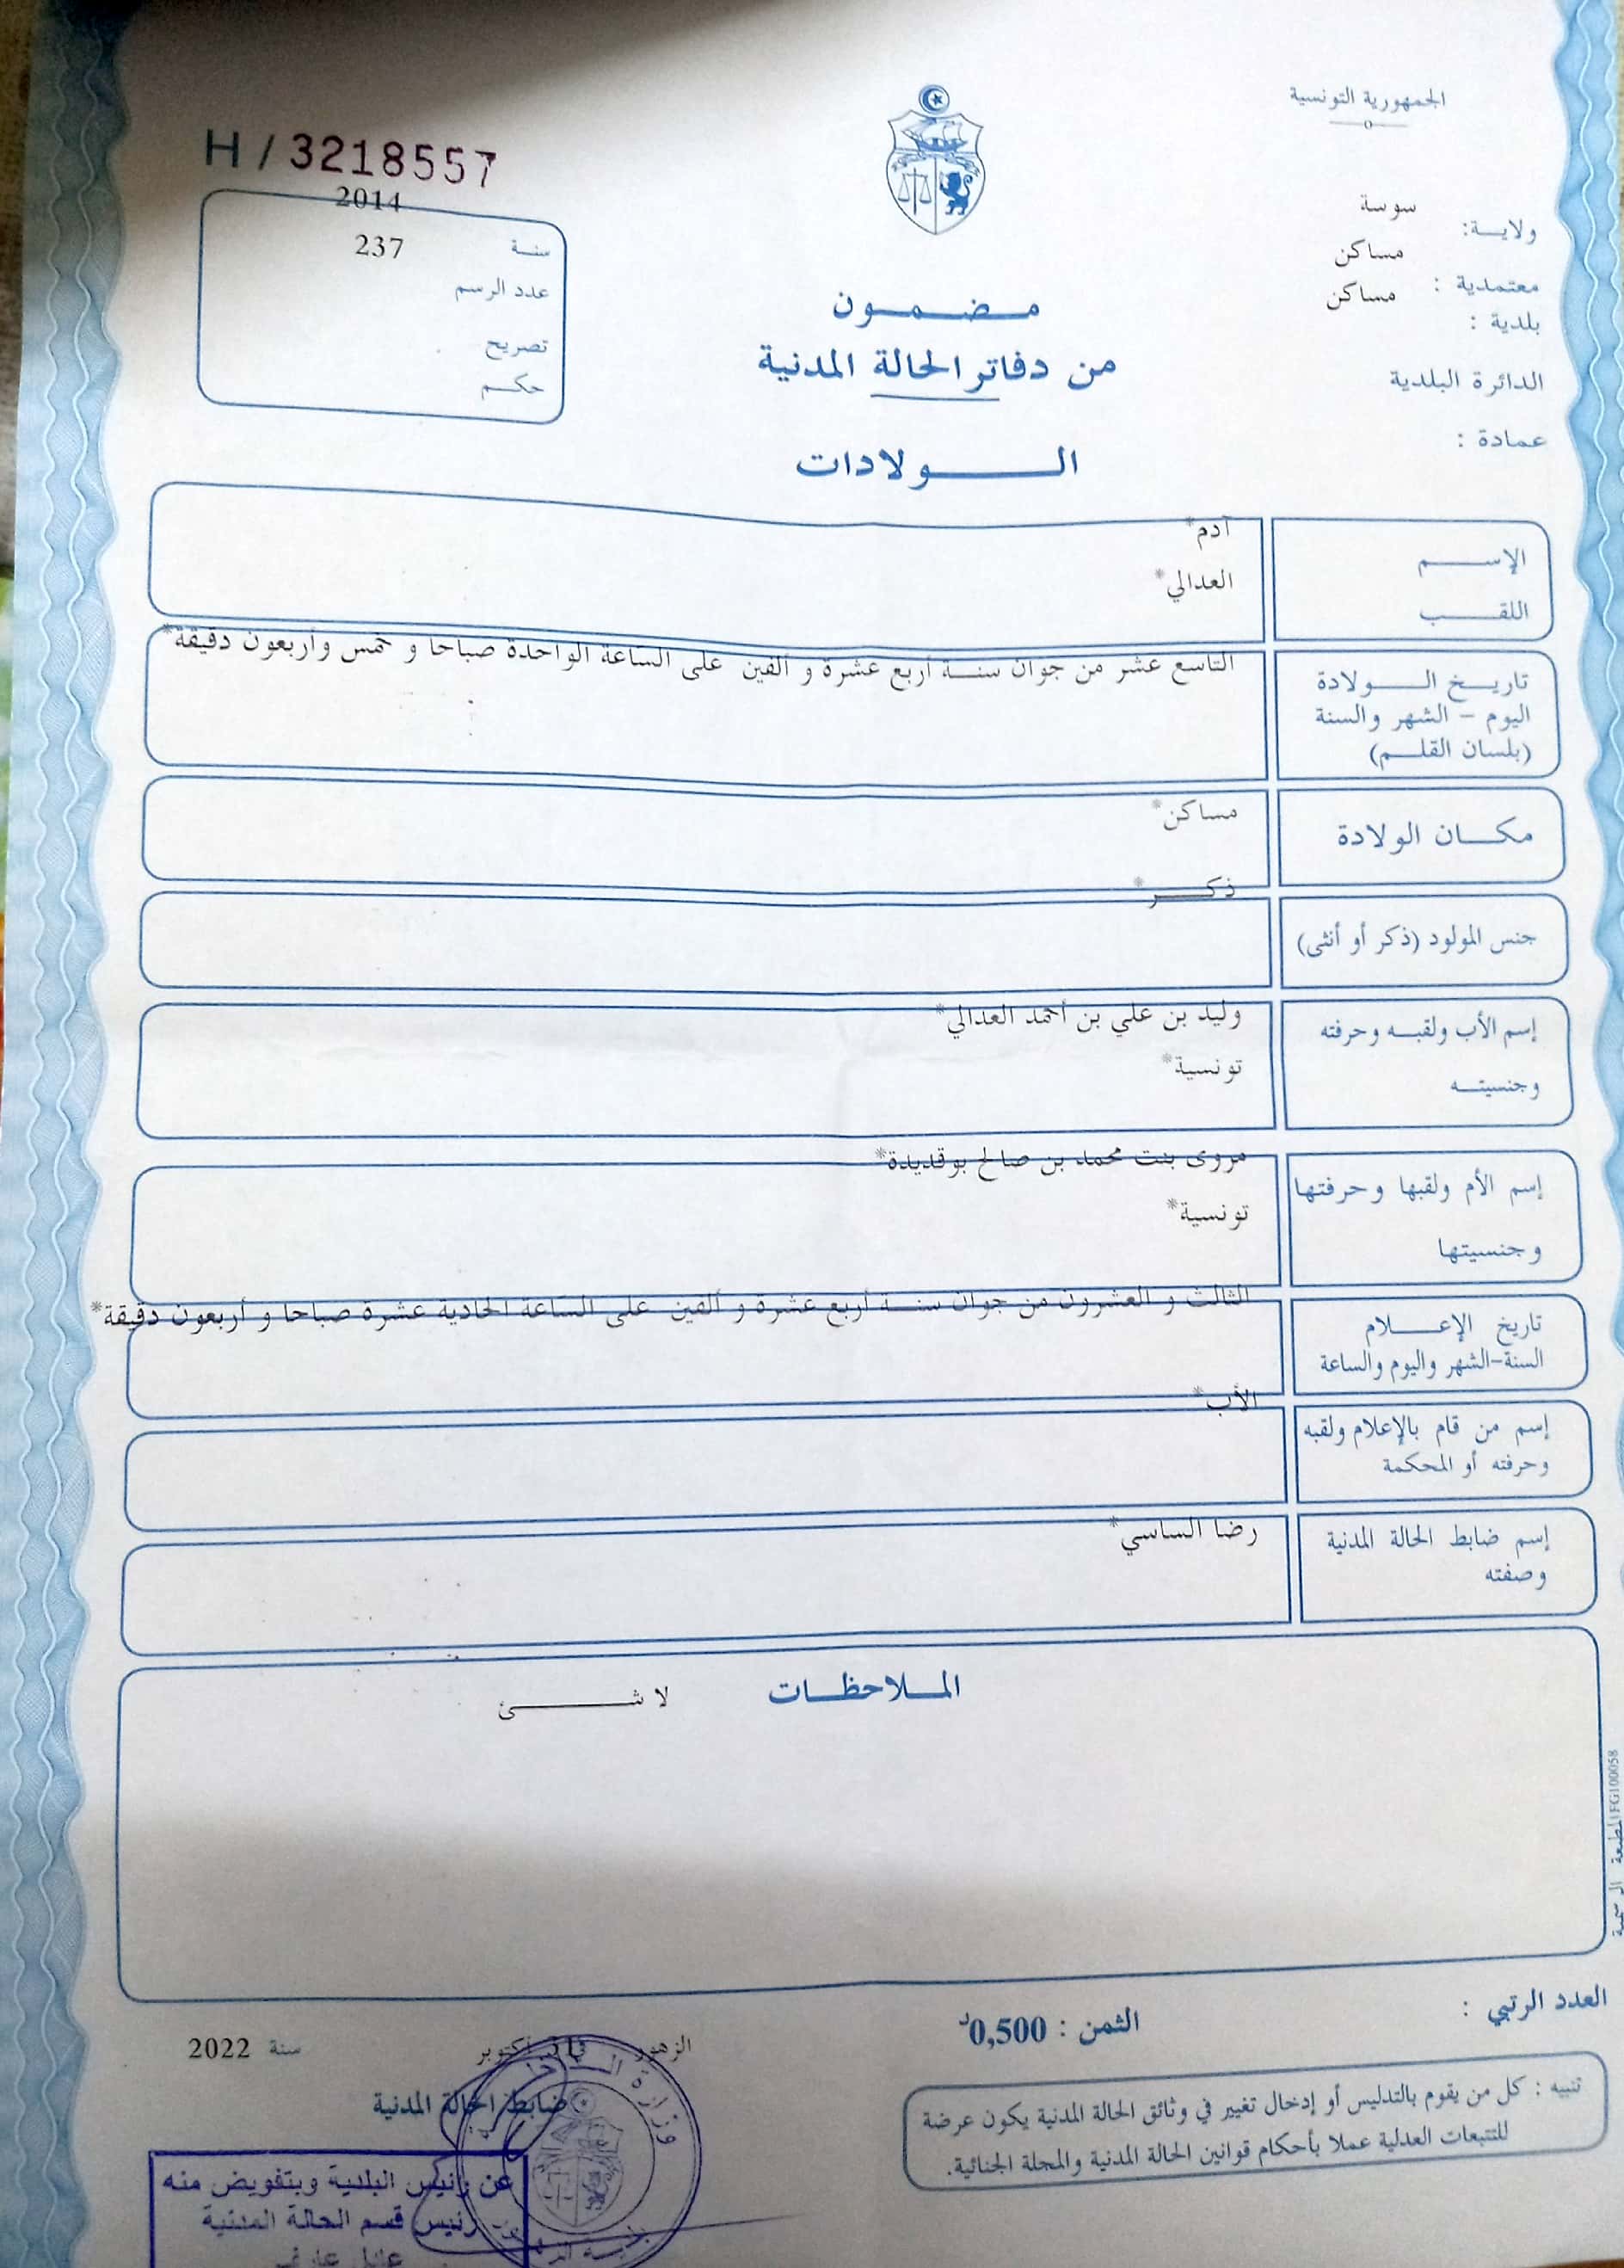 الجمهورية التونسية
H / 3218557
ولايـــة: سوسة
معتمدية : مساكن
بلدية : مساكن
الدائرة البلدية
عمادة :
سنـــة 2014
عدد الرسم 237
تصريح
حكـــم
مـضـمـون
من دفاتر الحالة المدنية
الـــولادات
الإســـم آدم*
اللقـــب العدالي*
تاريـــخ الـــولادة
اليوم – الشهر والسنة
(بلسان القلـــم)
التاسع عشر من جوان سنـــة أربع عشرة و ألفين على الساعة الواحدة صباحا و خمس وأربعون دقيقة*
مكـــان الولادة مساكن*
جنس المولود (ذكر أو أنثى) ذكـــر*
إسم الأب ولقبـــه وحرفته وليد بن علي بن أحمد العدالي*
وجنسيتـــه تونسية*
إسم الأم ولقبها وحرفتها مروى بنت محمد بن صالح بوقديدة*
وجنسيتها تونسية*
تاريخ الإعـــلام
السنة-الشهر واليوم والساعة
الثالث و العشرون من جوان سنـــة أربع عشرة و ألفين على الساعة الحادية عشرة صباحا و أربعون دقيقة*
إسم من قام بالإعلام ولقبه
وحرفته أو المحكمة
الأب*
إسم ضابط الحالة المدنية
وصفته
رضا الساسي*
المـــلاحظـــات
لا شـــئ
المطبعة الرسمية FG100058
العدد الرتبي :
الثمن : 0,500د
الزهور في أكتوبر سنة 2022
ضابط الحالة المدنية
تنبيه : كل من يقوم بالتدليس أو إدخال تغيير في وثائق الحالة المدنية يكون عرضة
للتتبعات العدلية عملا بأحكام قوانين الحالة المدنية والمجلة الجنائية.
عن رئيس البلدية وبتفويض منه
رئيس قسم الحالة المدنية